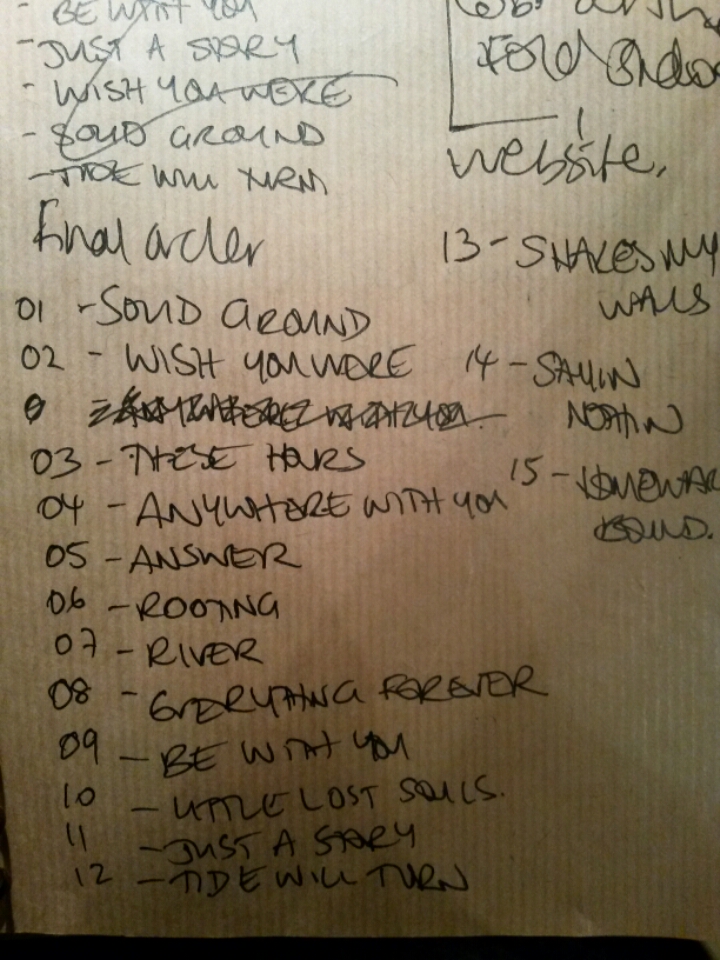 - BE WITH YOU
- JUST A STORY
- WISH YOU WERE
- SOLID GROUND
- TIDE WILL TURN
Fold
website.
Final order
01 - SOLID GROUND
02 - WISH YOU WERE
0
03 - THESE HOURS
04 - ANYWHERE WITH YOU
05 - ANSWER
06 - ROOTING
07 - RIVER
08 - EVERYTHING FOREVER
09 - BE WITH YOU
10 - LITTLE LOST SOULS.
11 - JUST A STORY
12 - TIDE WILL TURN
13 - SHAKES MY
WALLS
14 - SAYIN
NOTHIN
15 - HOMEWAR
BOUND.